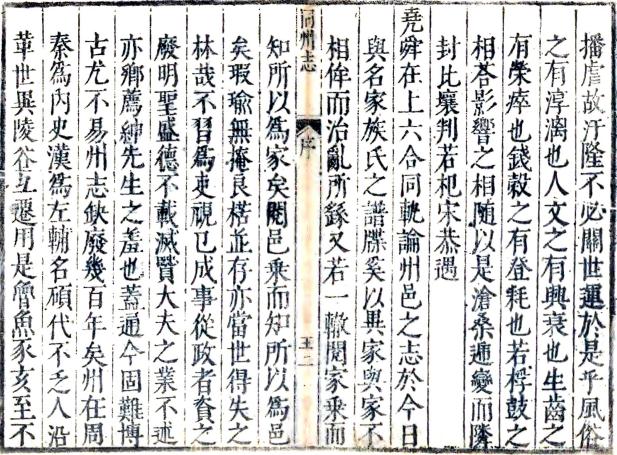 播虐故汙隆不必關世運於是乎風俗
之有淳漓也人文之有興衰也生齒之
有榮瘁也錢穀之有登耗也若桴鼓之
相答影響之相随以是滄桑遞變而隣
封比壤判若杞宋恭遇
堯舜在上六合同軌論州邑之志於今日
與名家族氏之譜牒奚以異家與家不
相侔而治亂所繇又若一轍閱家乗而
同州志 序 二
知所以爲家矣閱邑乗而知所以爲邑
矣瑕瑜無掩良楛並存亦當世得失之
林哉不習爲吏視已成事從政者資之
廢明聖盛德不載滅賢大夫之業不述
亦鄉薦紳先生之羞也蓋通今固難博
古尤不易州志缺廢幾百年矣州在周
秦爲內史漢爲左輔名碩代不乏人沿
革世異陵谷互遷用是魯魚豕亥至不